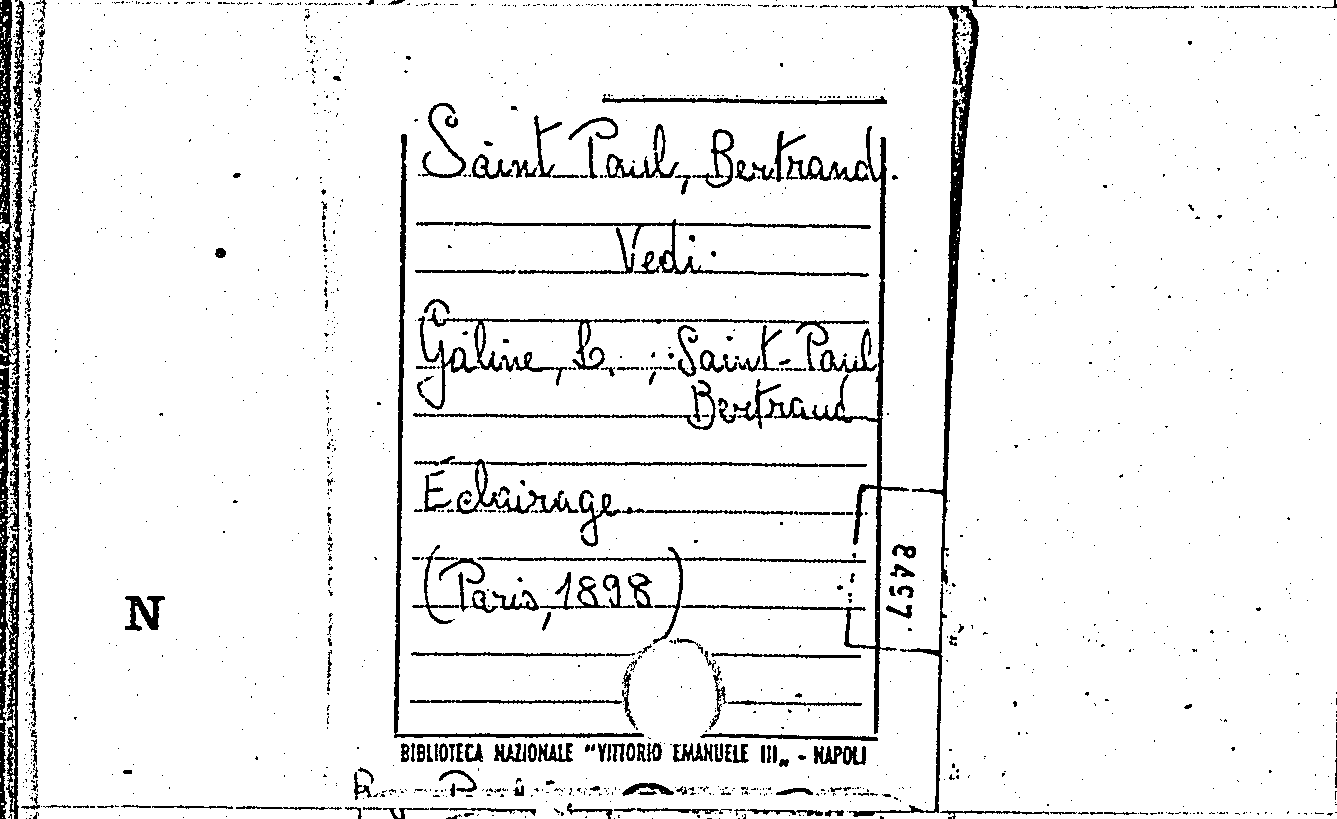 Saint Paul, Bertrand.
Vedi:
Galine, L. ; Saint-Paul
Bertrand
Éclairage.
(Paris, 1898)
8457
N
BIBLIOTECA NAZIONALE "VITTORIO EMANUELE III„ - NAPOLI